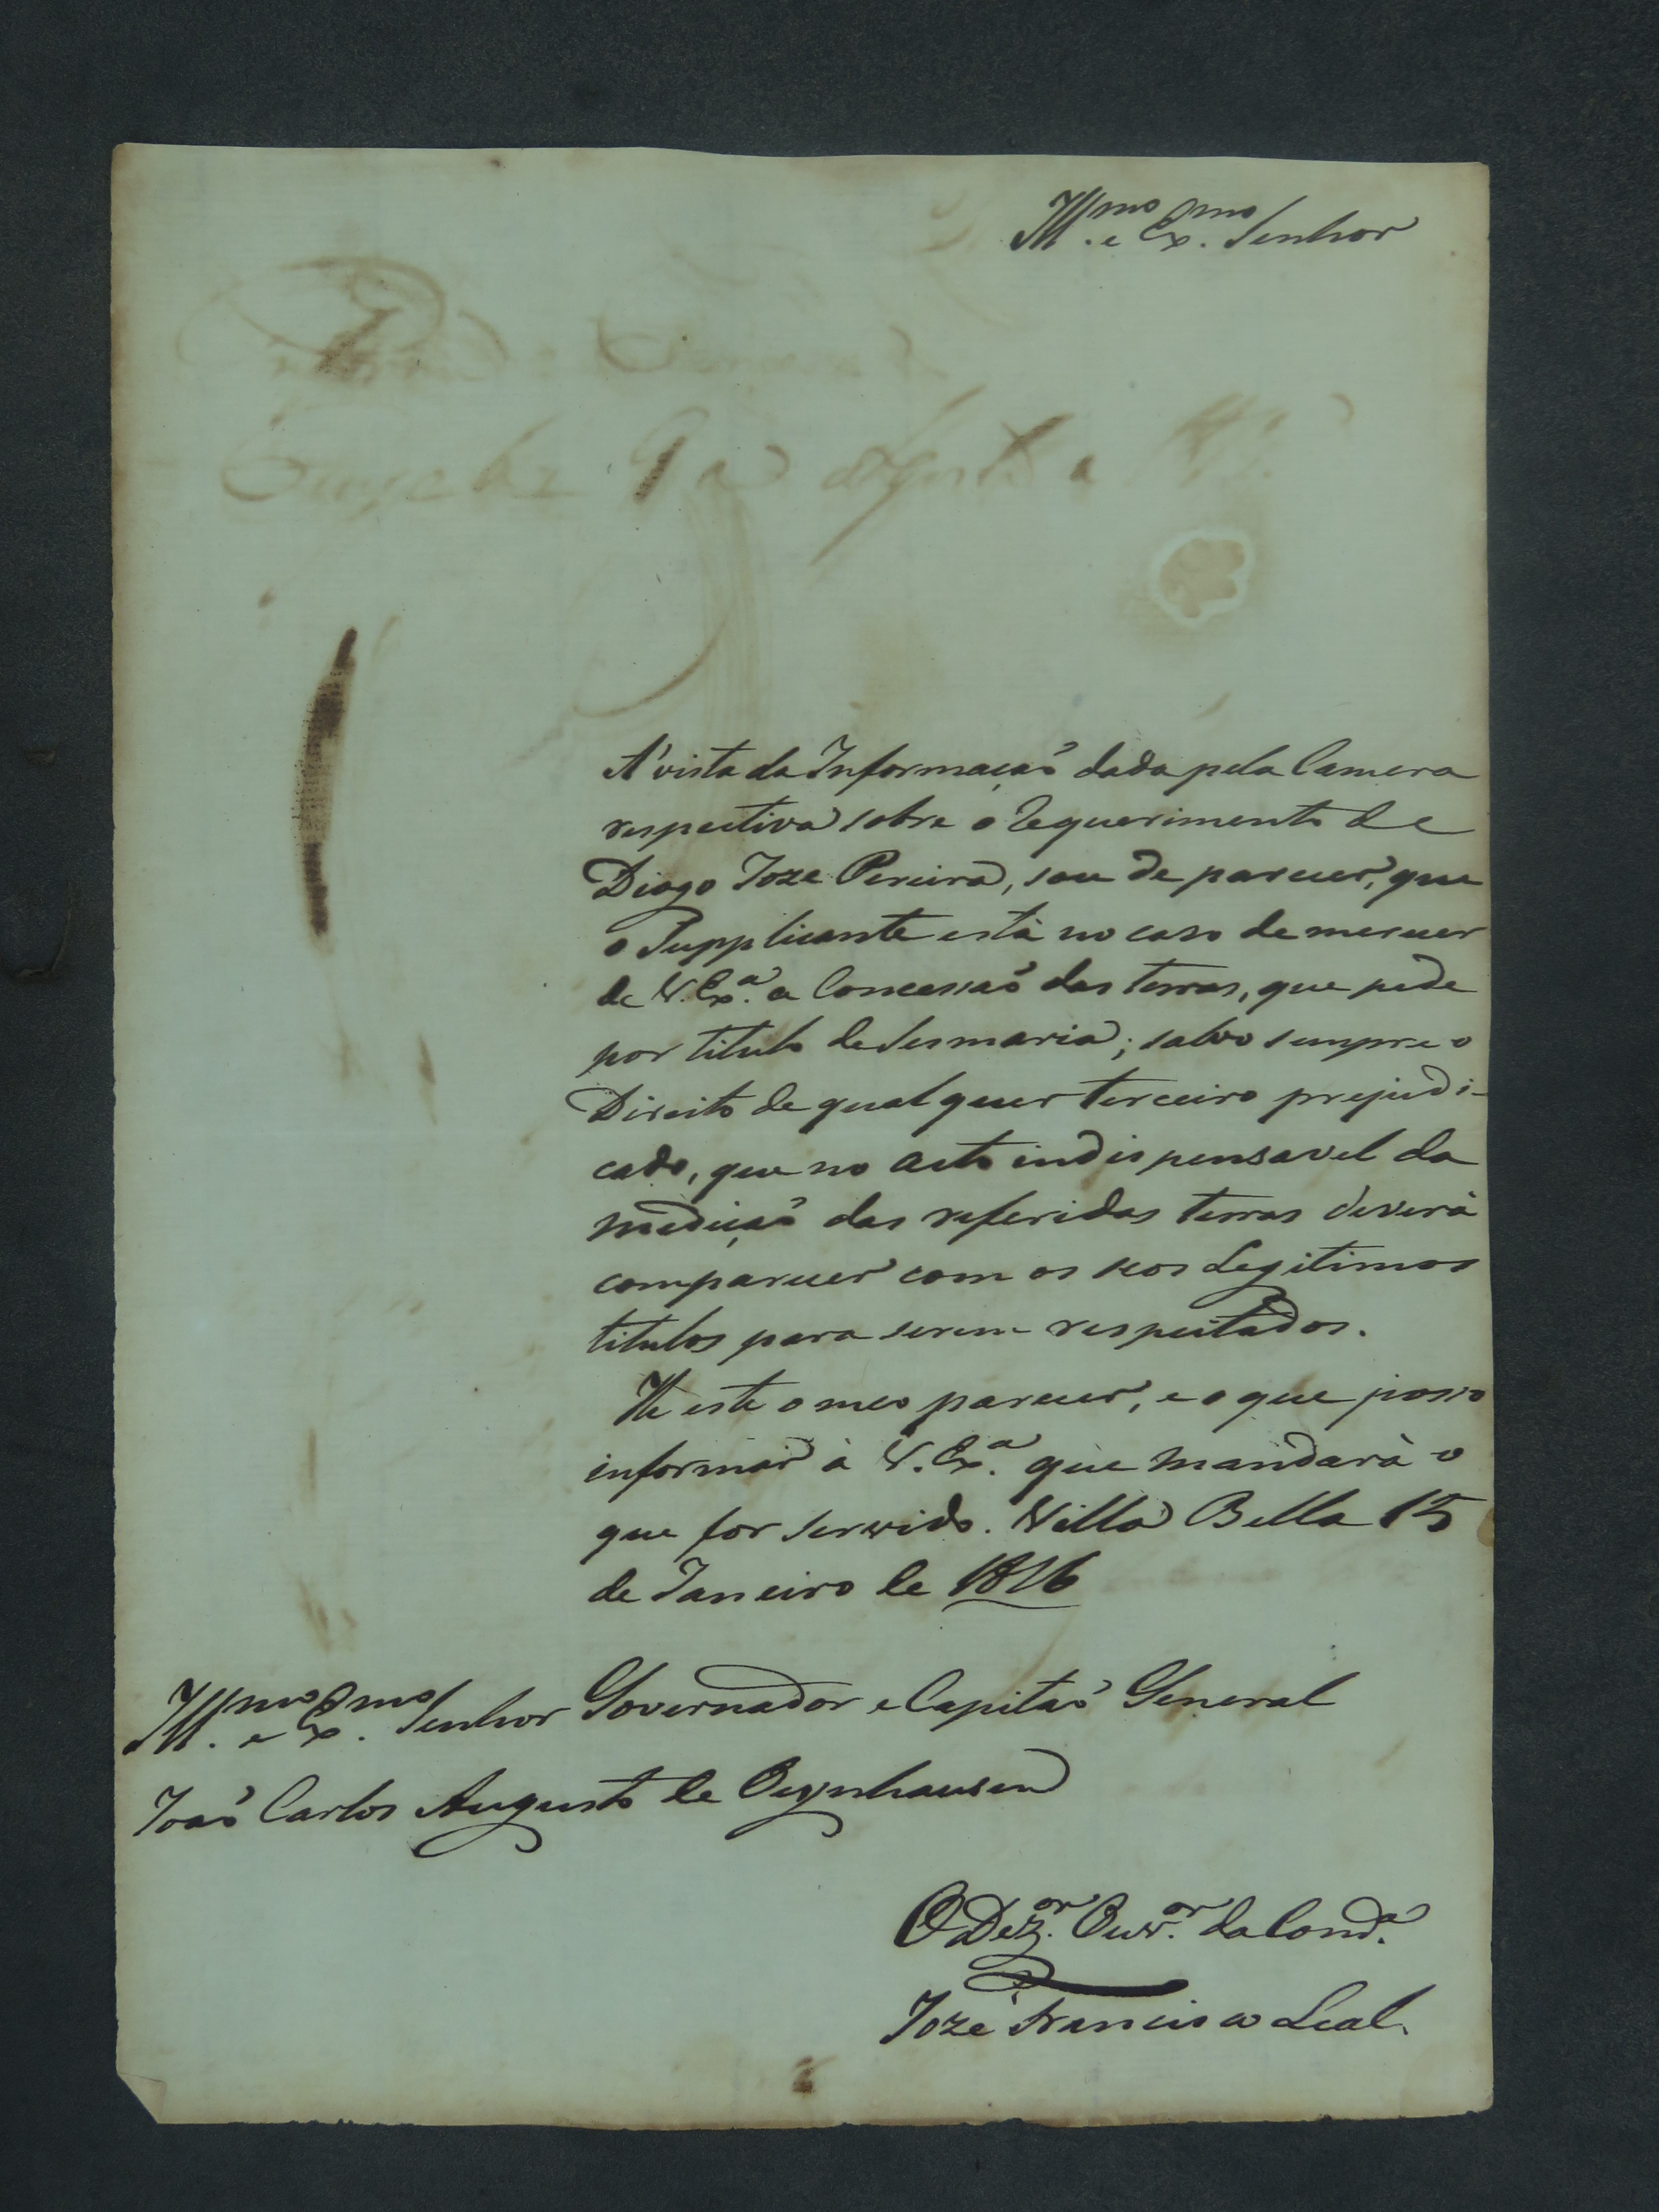 Ill.mo e Ex.mo Senhor
A' vista da Informaçaõ dada pela Camera
respectiva sobre o Requerimento de
Diogo Joze Pereira, sou de parecer, que
o Supplicante està no caso de merecer
de V. Ex.a a Concessaõ das terras, que pede
por titulo de Sesmaria; salvo sempre o
Direito de qualquer terceiro prejudi-
cado, que no acto indispensavel da
mediçaõ das referidas terras deverà
comparecer com os seos Legitimos
titulos para serem respeitados.
He este o meo parecer, e o que posso
informar à V. Ex.a que mandarà o
que for servido. Villa Bella 15
de Janeiro de 1816
Ill.mo e Ex.mo Senhor Governador e Capitaõ General
Joaõ Carlos Augusto de Oeynhausen
O Dez.or Ouv.or da Com.a
Joze Francisco Leal.